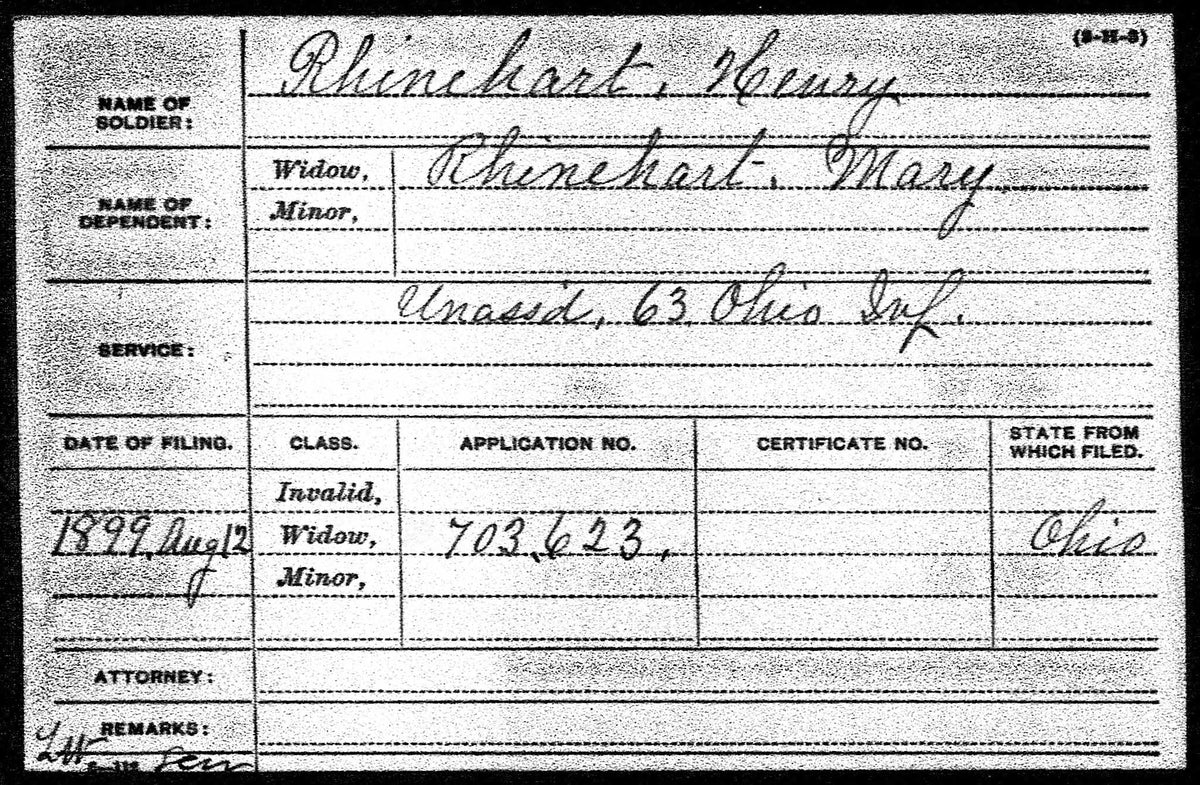 (3-H-3)
NAME OF SOLDIER: Rhinehart, Henry
NAME OF DEPENDENT: Widow, Rhinehart, Mary
Minor,
SERVICE: Unassd, 63 Ohio Inf.
DATE OF FILING. CLASS. APPLICATION NO. CERTIFICATE NO. STATE FROM WHICH FILED.
Invalid,
1899, Aug 12 Widow, 703,623, Ohio
Minor,
ATTORNEY:
REMARKS: